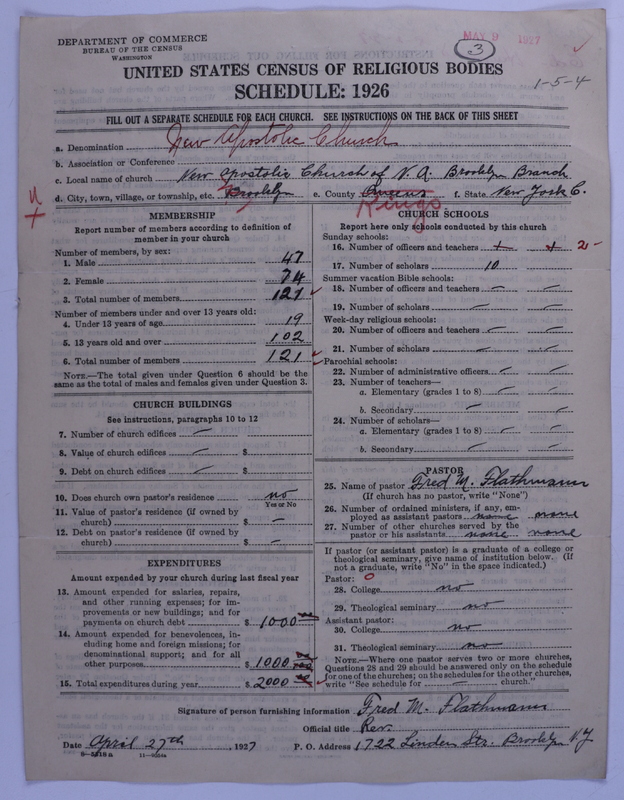 DEPARTMENT OF COMMERCE
BUREAU OF THE CENSUS
WASHINGTON
MAY 9 1927
3
1-5-4
UNITED STATES CENSUS OF RELIGIOUS BODIES
SCHEDULE: 1926
FILL OUT A SEPARATE SCHEDULE FOR EACH CHURCH. SEE INSTRUCTIONS ON THE BACK OF THIS SHEET
a. Denomination New Apostolic Church
b. Association or Conference
c. Local name of church New Apostolic Church of N. A. Brooklyn Branch
d. City, town, village, or township, etc. Brooklyn e. County Queens f. State New York C.
Kings
MEMBERSHIP
Report number of members according to definition of
member in your church
Number of members, by sex:
1. Male 47
2. Female 74
3. Total number of members 121
Number of members under and over 13 years old:
4. Under 13 years of age 19
5. 13 years old and over 102
6. Total number of members 121
NOTE.—The total given under Question 6 should be
same as the total of males and females given under Question 3.
CHURCH BUILDINGS
See instructions, paragraphs 10 to 12
7. Number of church edifices —
8. Value of church edifices — $
9. Debt on church edifices — $
10. Does church own pastor's residence no
Yes or No
11. Value of pastor's residence (if owned by
church) $ —
12. Debt on pastor's residence (if owned by
church) $ —
EXPENDITURES
Amount expended by your church during last fiscal year
13. Amount expended for salaries, repairs,
and other running expenses; for im-
provements or new buildings; and for
payments on church debt $ 1000
14. Amount expended for benevolences, in-
cluding home and foreign missions; for
denominational support; and for all
other purposes $ 1000
15. Total expenditures during year $ 2000
CHURCH SCHOOLS
Report here only schools conducted by this church
Sunday schools:
16. Number of officers and teachers 2
17. Number of scholars 10
Summer vacation Bible schools:
18. Number of officers and teachers —
19. Number of scholars —
Week-day religious schools:
20. Number of officers and teachers —
21. Number of scholars —
Parochial schools:
22. Number of administrative officers —
23. Number of teachers—
a. Elementary (grades 1 to 8) —
b. Secondary —
24. Number of scholars—
a. Elementary (grades 1 to 8) —
b. Secondary —
PASTOR
25. Name of pastor Fred M. Flathmann
(If church has no pastor, write "None")
26. Number of ordained ministers, if any, em-
ployed as assistant pastors none none
27. Number of other churches served by the
pastor or his assistants none none
If pastor (or assistant pastor) is a graduate of a college or
theological seminary, give name of institution below. (If
not a graduate, write "No" in the space indicated.)
Pastor: 0
28. College no
29. Theological seminary no
Assistant pastor:
30. College no
31. Theological seminary no
NOTE.—Where one pastor serves two or more churches,
Questions 28 and 29 should be answered only on the schedule
for one of the churches; on the schedules for the other churches,
write "See schedule for — church."
Signature of person furnishing information Fred M. Flathmann
Official title Rev.
Date April 27th, 1927 P. O. Address 1722 Linden Str. Brooklyn N.Y